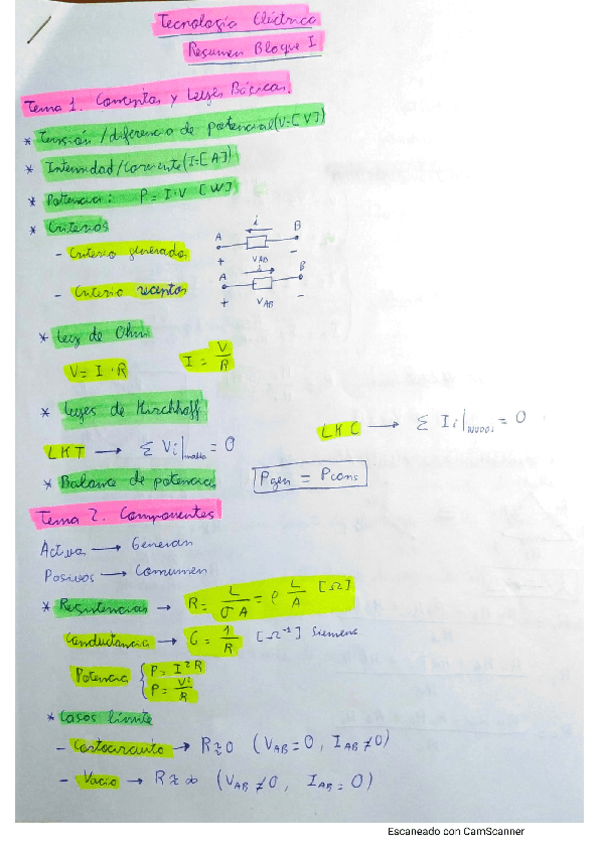 Tecnología Eléctrica
Resumen Bloque I
Tema 1. Conceptos y Leyes Básicas.
* Tensión / diferencia de potencial (V=[V])
* Intensidad/Corriente (I=[A])
* Potencia: P = I·V [W]
* Criterios
- Criterio generador
A i B
+ VAB -
- Criterio receptor
A i B
+ VAB -
* Ley de Ohm
V = I · R I = V/R
* Leyes de Kirchhoff
LKT → Σ Vi|malla = 0 LKC → Σ Ii|nudos = 0
* Balance de potencias Pgen = Pcons
Tema 2. Componentes
Activos → Generan
Pasivos → Consumen
* Resistencias → R = L/σA = ρ L/A [Ω]
Conductancia → G = 1/R [Ω⁻¹] Siemens
Potencia { P = I²R
P = V²/R
* Casos límite
- Cortocircuito → R≈0 (VAB = 0, IAB ≠ 0)
- Vacío → R≈∞ (VAB ≠ 0, IAB = 0)
Escaneado con CamScanner